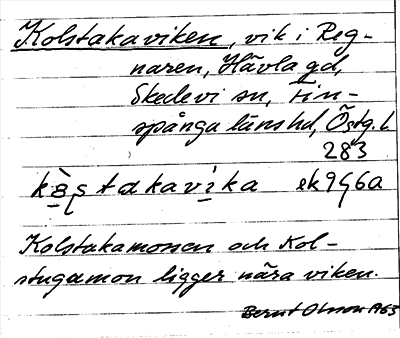 Kolstakaviken, vik i Reg-
naren, Hävla gd,
Skedevi sn, Fin-
spånga läns hd, Östg. l.
283
ek 9G6a
Kolstakamossen och Kol-
stugumon ligger nära viken.
Bernt Olsson 1963